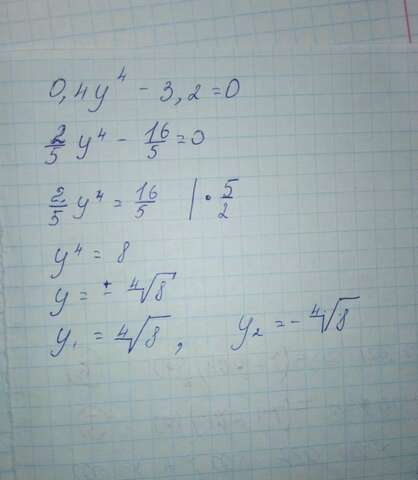 0,4y⁴ - 3,2 = 0
2/5 y⁴ - 16/5 = 0
2/5 y⁴ = 16/5 | · 5/2
y⁴ = 8
y = ± ⁴√8
y₁ = ⁴√8, y₂ = - ⁴√8